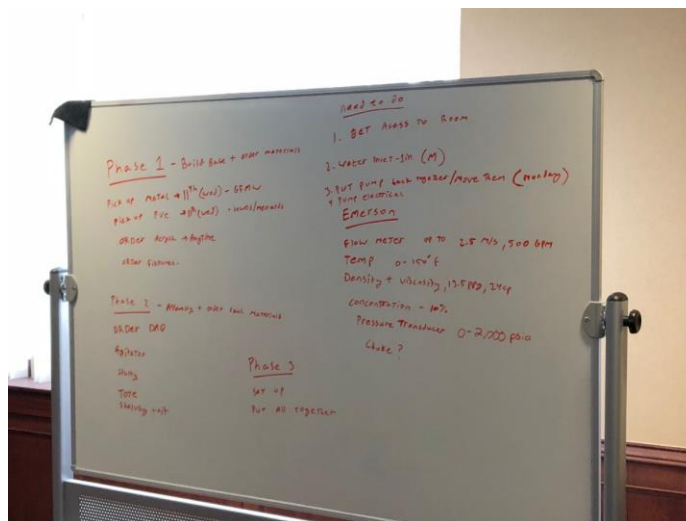 Phase 1 - Build Base + order materials
Pick up Metal → 11th (wed) -
pick up PVC → 11th (wed) - Lowes/menards
ORDER Acrylic → Anytime
ORDER fixtures.
Phase 2 - + order materials
ORDER DAQ
Agitator
Slurry
Tote
Phase 3
Set up
Put All together
need to do
1. GET Access To Room
2. Water Inlet - 1in. (M)
3. PUT pump back together/move them (Monday)
+ Pump electrical
Emerson
Flow meter up to 2.5 m/s, 500 GPM
Temp 0-150° F
Density + viscosity, 13.5 PPG, 24cp
concentration - 10%
Pressure Transducer 0-2,000 psia
Choke?